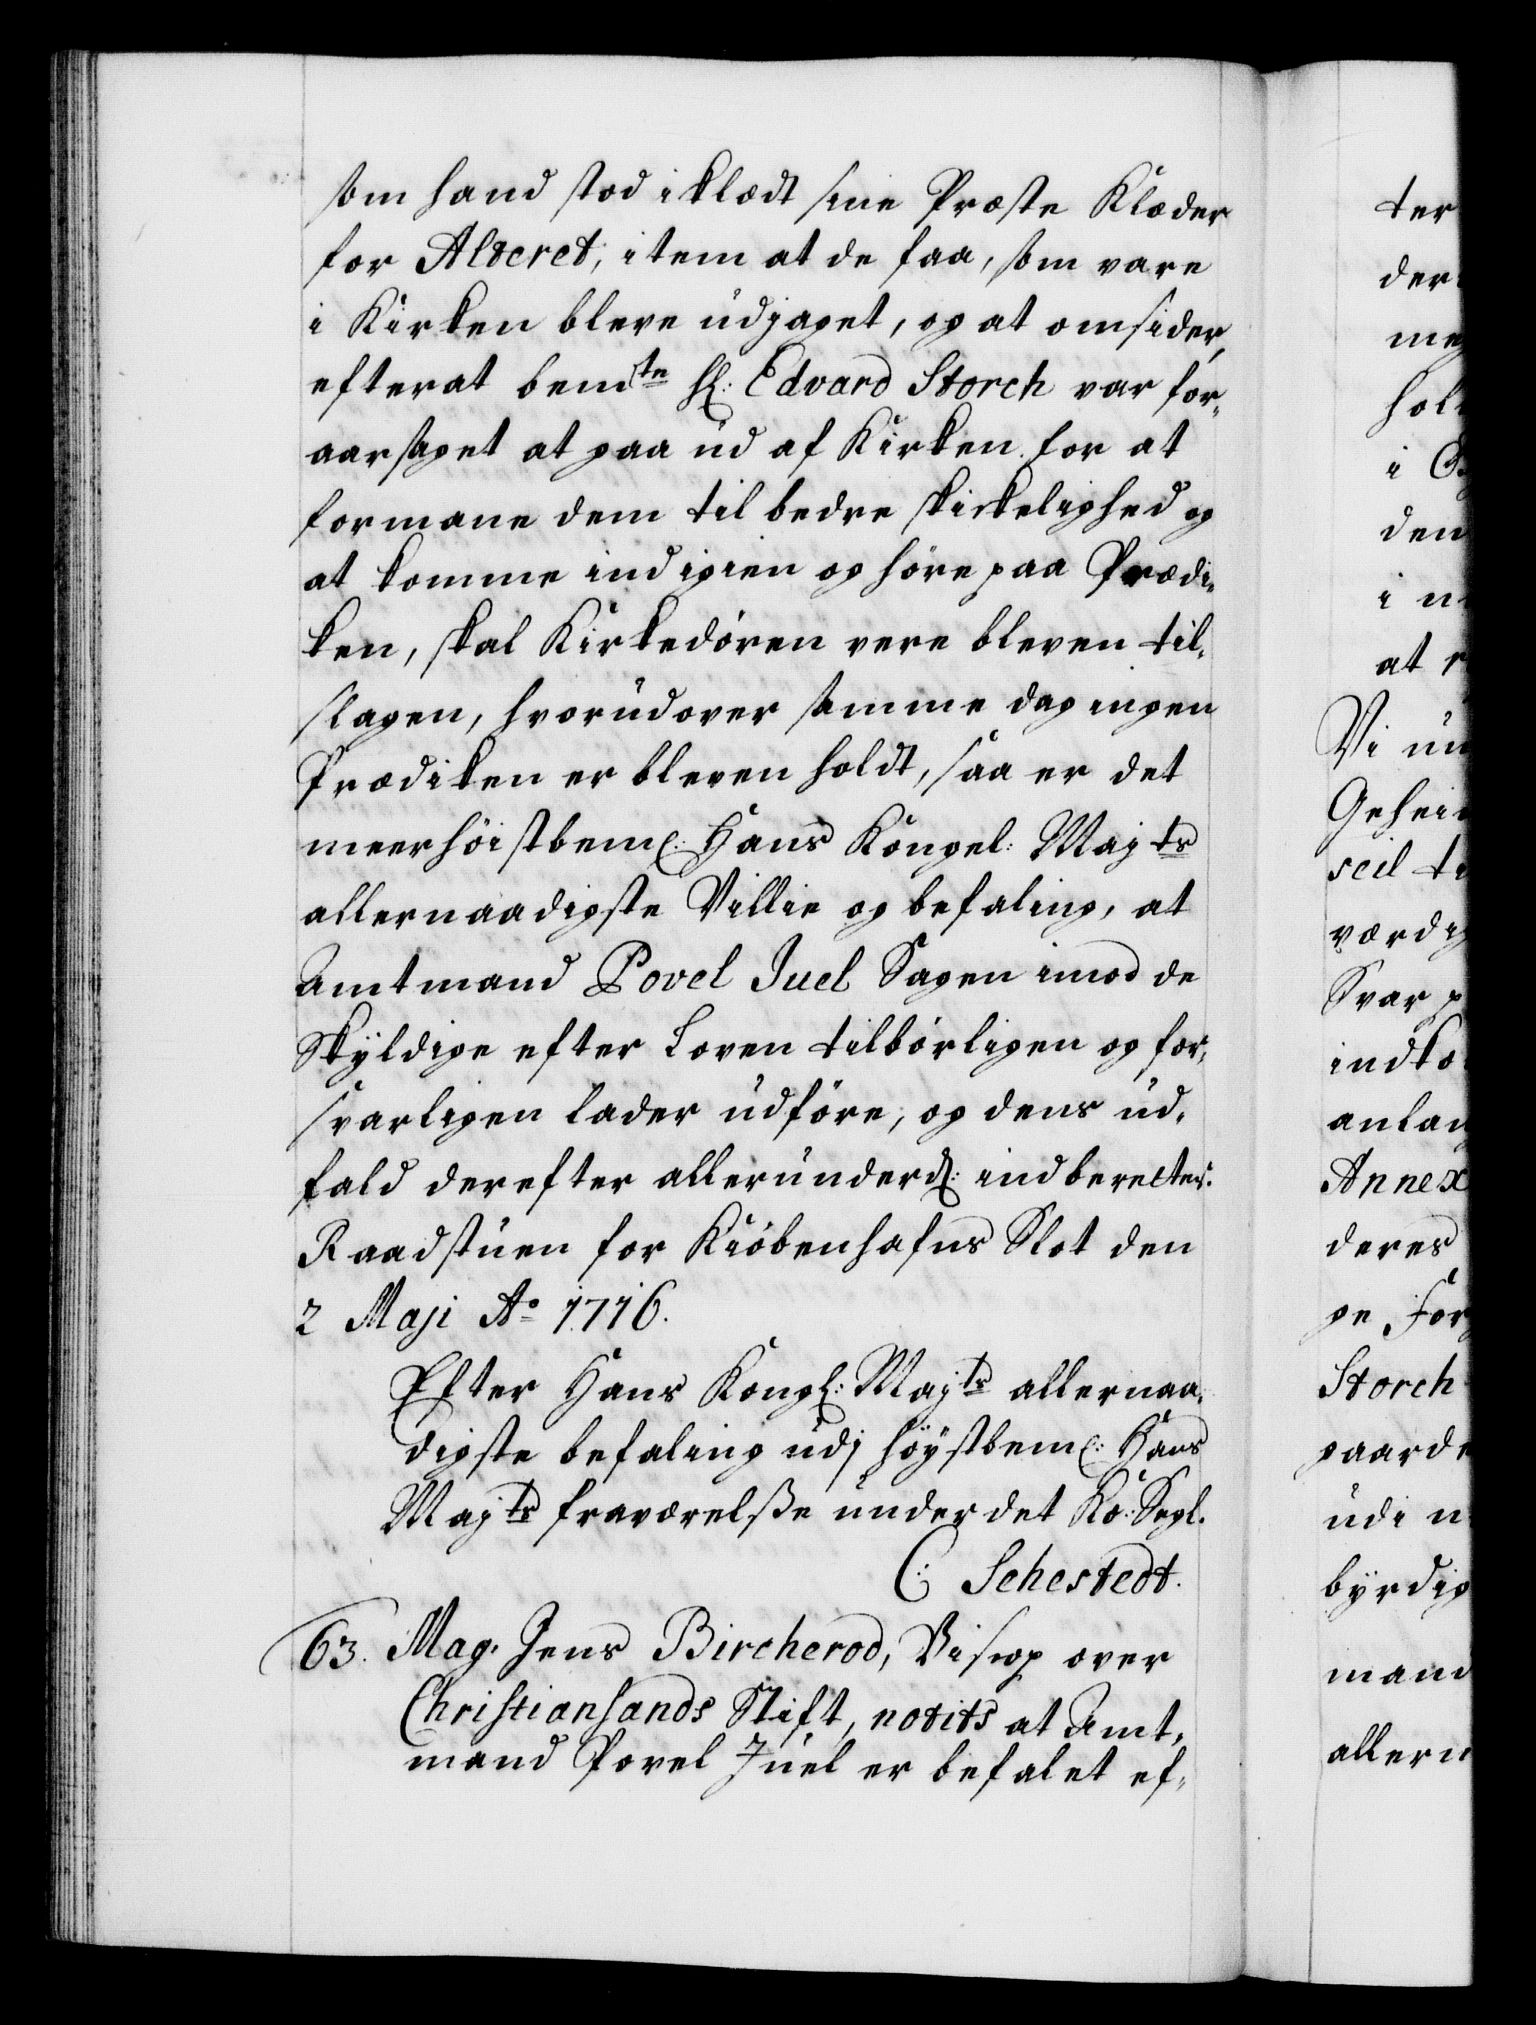 som hand stod iklædt sine Præste Klæder
for Alteret; item at de faa, som vare
i Kirken bleve udjaget, og at omsider,
efterat bemte Hr: Edvard Storch var for-
aarsaget at gaa ud af Kirken for at
formane dem til bedre skickelighed og
at komme ind igien og høre paa Prædi-
ken, skal Kirkedøren vere bleven til-
slagen, hvorudover samme dag ingen
Prædiken er bleven holdt, saa er det
meerhøistbemt: Hans Kongel: Majts
allernaadigste Villie og befaling, at
Amtmand Povel Juel Sagen imod de
Skyldige efter Loven tilbørligen og for-
svarligen lader udføre, og dens ud-
fald derefter allerunderd: indberetter.
Raadstuen for Kiøbenhafns Slot den
2 Maji Ao 1716.
Efter Hans Kongl: Majts allernaa-
digste befaling udj høystbemt: Hans
Majts fraværelsse under det Ko: Segl.
C: Sehestedt.
63. Mag. Jens Bircherod, Biscop over
Christiansands Stift, notits at Amt-
mand Povel Juel er befalet ef-
ter
der
meg
hol
i
den
i n
at
Vi un
Gehei
seil ti
værdig
Svar p
indko
anlan
Annex
deres
ge For
Storch
gaarde
udi n
byrdig
mand
allern